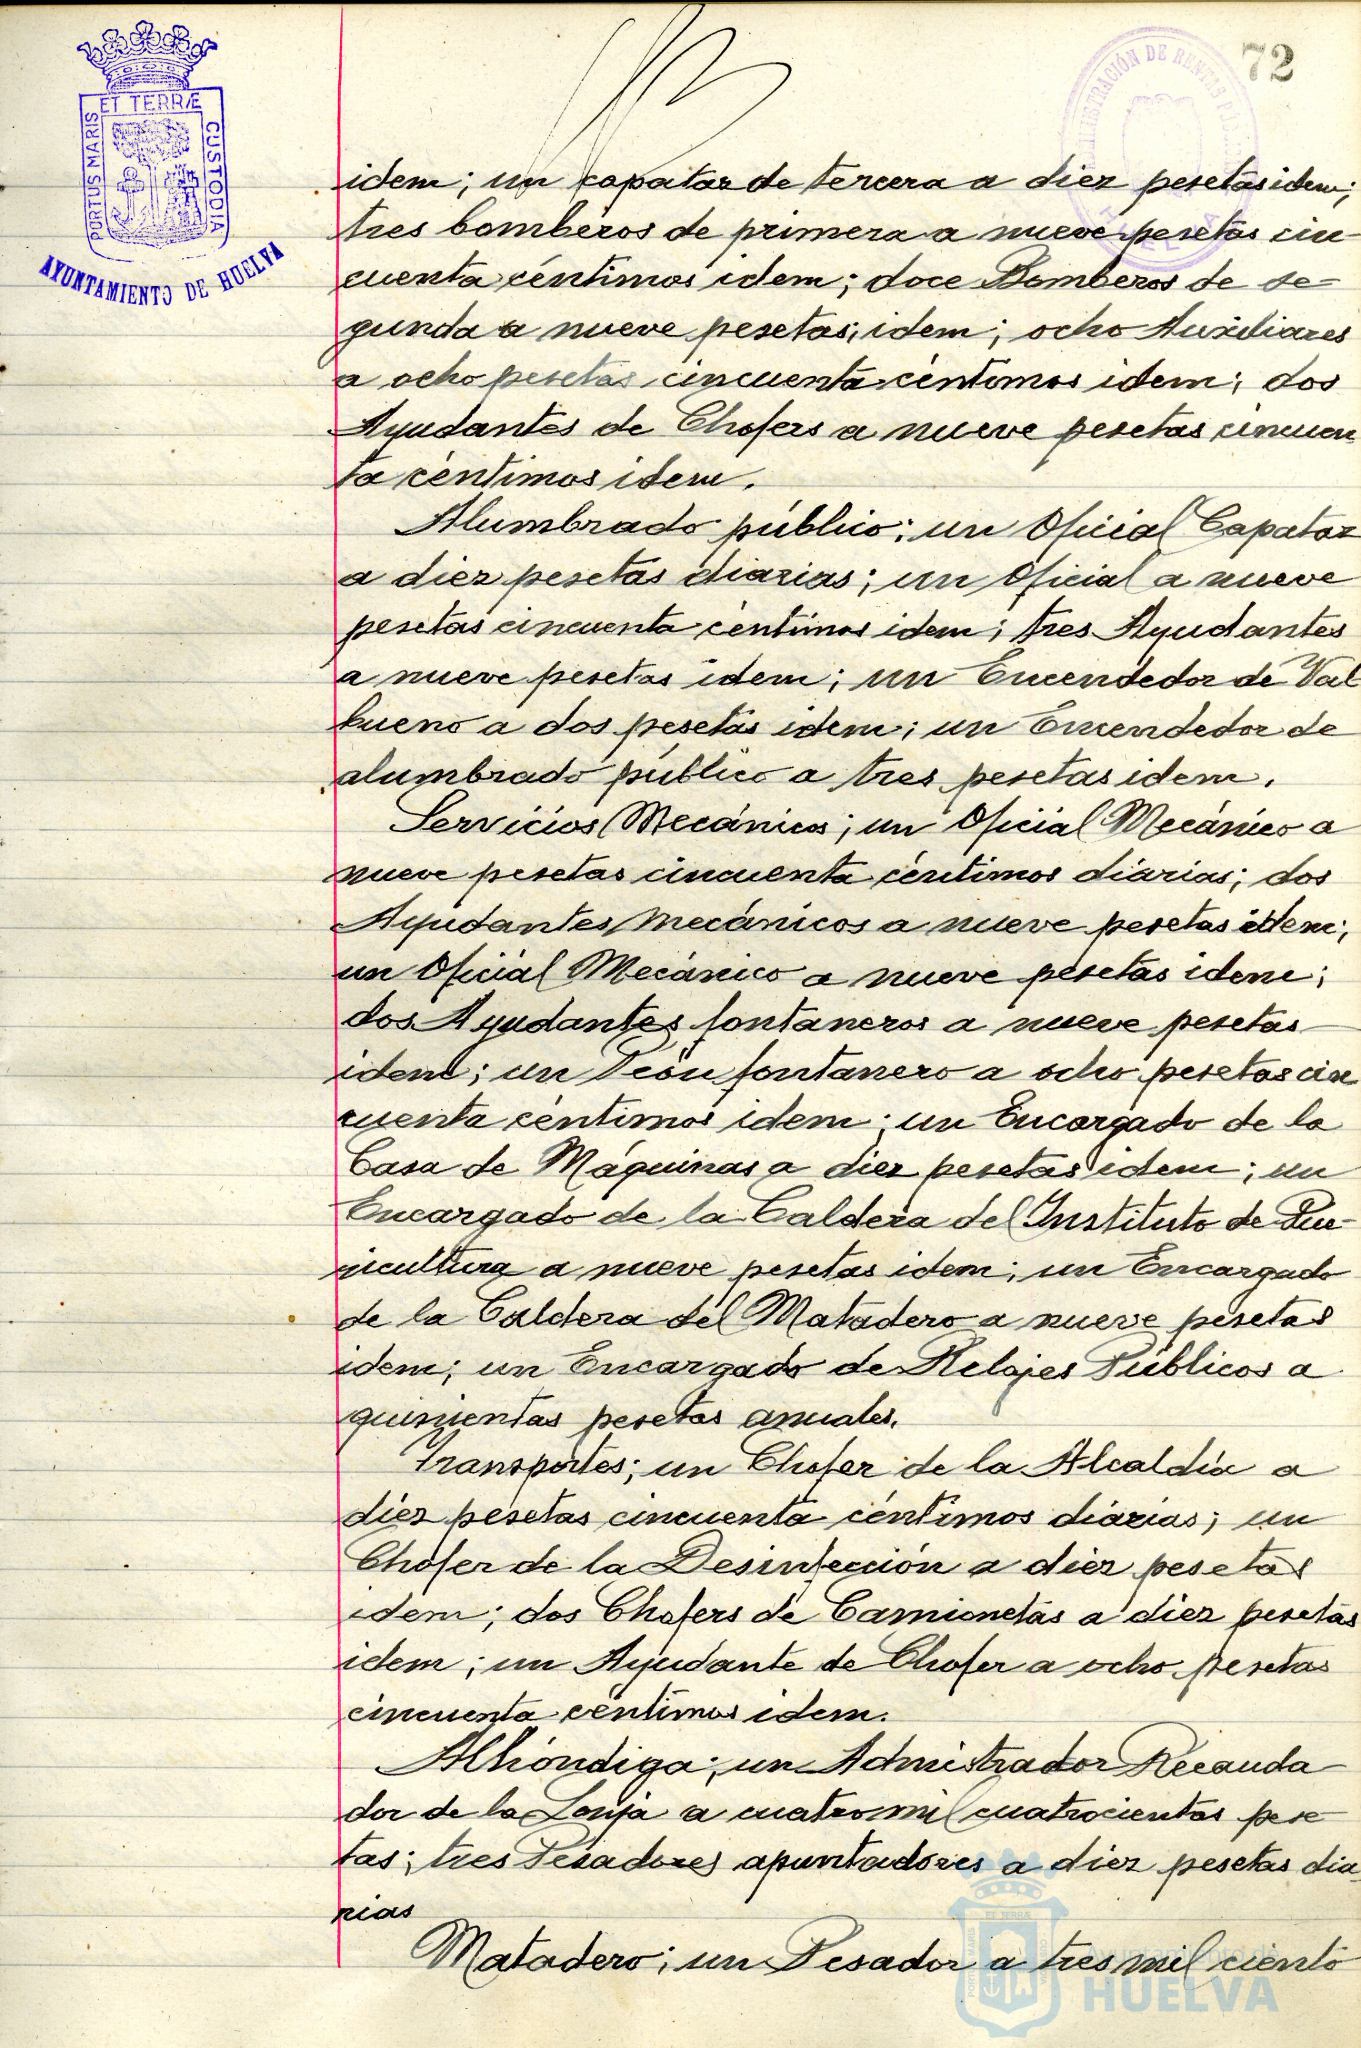 72
ET TERRÆ
PORTUS MARIS
CUSTODIA
AYUNTAMIENTO DE HUELVA
idem; un capataz de tercera a diez pesetas idem;
tres bomberos de primera a nueve pesetas cin-
cuenta céntimos idem; doce Bomberos de se-
gunda a nueve pesetas, idem; ocho Auxiliares
a ocho pesetas cincuenta céntimos idem; dos
Ayudantes de Chofers a nueve pesetas cincuen
ta céntimos idem.
Alumbrado público; un Oficial Capataz
a diez pesetas diarias; un Oficial a nueve
pesetas cincuenta céntimos idem; tres Ayudantes
a nueve pesetas idem; un Encendedor de Val
bueno a dos pesetas idem; un Encendedor de
alumbrado público a tres pesetas idem.
Servicios Mecánicos; un Oficial Mecánico a
nueve pesetas cincuenta céntimos diarias; dos
Ayudantes mecánicos a nueve pesetas idem;
un Oficial Mecánico a nueve pesetas idem;
dos Ayudantes fontaneros a nueve pesetas
idem; un Peón fontanero a ocho pesetas cin
cuenta céntimos idem; un Encargado de la
Casa de Máquinas a diez pesetas idem; un
Encargado de la Caldera del Instituto de Pue-
ricultura a nueve pesetas idem; un Encargado
de la Caldera del Matadero a nueve pesetas
idem; un Encargado de Relojes Públicos a
quinientas pesetas anuales.
Transportes; un Chofer de la Alcaldía a
diez pesetas cincuenta céntimos diarias; un
Chofer de la Desinfección a diez pesetas
idem; dos Chofers de Camionetas a diez pesetas
idem; un Ayudante de Chofer a ocho pesetas
cincuenta céntimos idem.
Alhóndiga; un Admistrador Recauda-
dor de la Lonja a cuatro mil cuatrocientas pese
tas; tres Pesadores apuntadores a diez pesetas dia
rias
Matadero; un Pesador a tres mil ciento
Ayuntamiento de
HUELVA